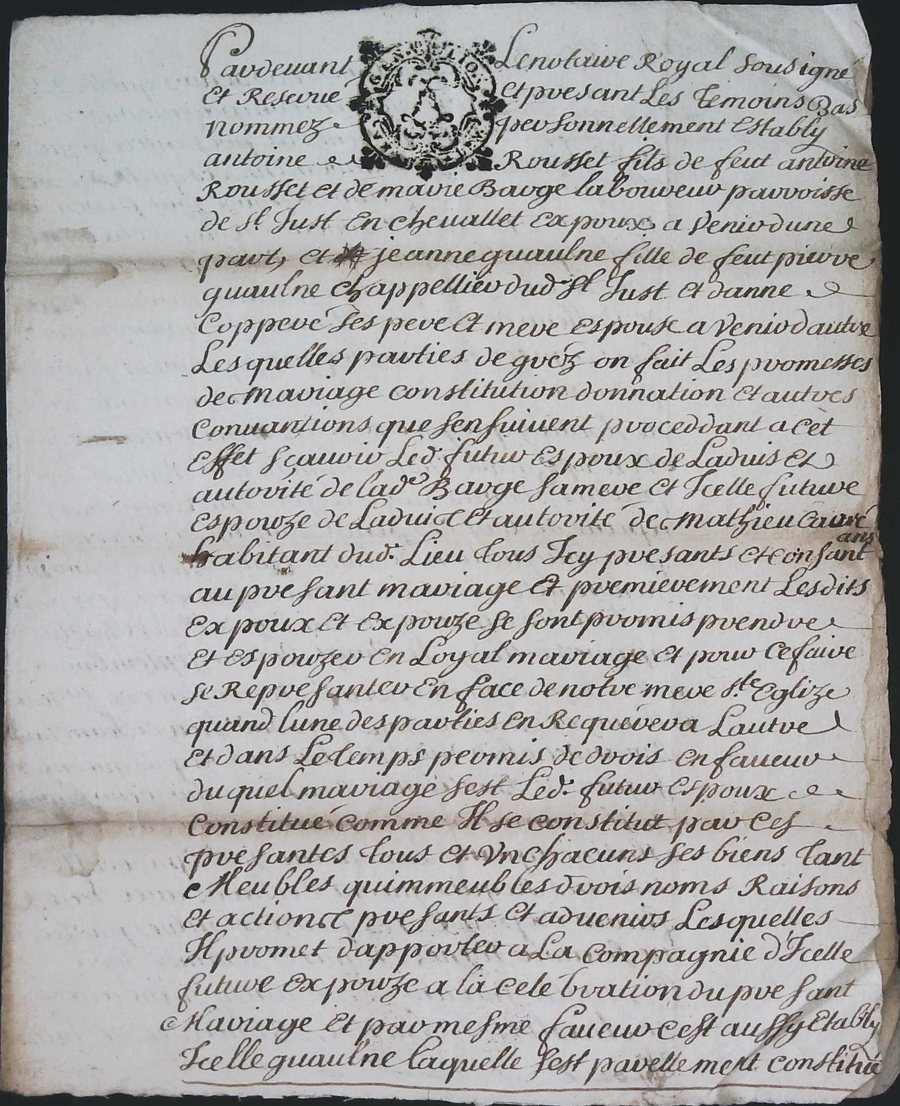 Pardeuant Le notaire Royal sousigné
Et Reserué Et presant Les temoins Bas
nommez personnellement Estably
antoine Rousset fils de feut antoine
Rousset et de marie Barge laboureur parroisse
de St. Just En cheuallet Expoux a Venir dune
part, et jeanne guaulne fille de feut pierre
guaulne chappellier dud. St. Just et danne
Copperé ses pere et mere Espouse a Venir dautre
Les quelles parties de gréz on fait Les promesses
de mariage constitution donnation et autres
Conuantions que sensuiuent proceddant a cet
Effet scauoir Led. futur Espoux de Laduis et
autorité de lade. Barge sa mere et Icelle future
Espouze de Laduice et autorité de Mathieu
habitant dud. Lieu tous Icy presants et consantans
au presant mariage et premierement Lesdits
Expoux et Expouze se sont promis prendre
et espouzer en Loyal mariage et pour ce faire
se Represanter En face de notre mere Ste Eglize
quand lune des parties en Requerera Lautre
et dans Le temps permis de drois en faueur
du quel mariage sest Led. futur Espoux
Constitué comme Il se constitut par ces
presantes tous et Vn chacuns ses biens tant
Meubles quimmeubles drois noms Raisons
et actionce presants et aduenirs Lesquelles
Il promet dapporter a La compagnie d'Icelle
future expouze a la celebration du presant
Mariage et par mesme faueur cest aussy Etably
Icelle guaulne laquelle sest parellement constitué